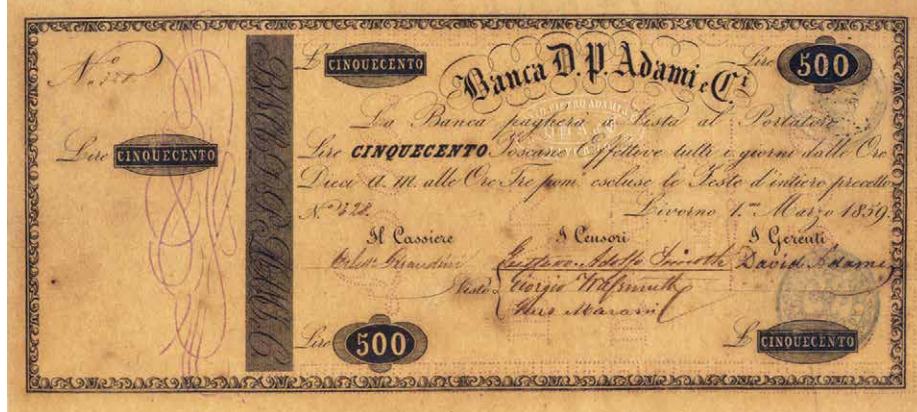 N.º 328
Lire CINQUECENTO
L CINQUECENTO
Lire 500
Banca D. P. Adami e Ci
La Banca pagherà a Vista al Portatore
Lire CINQUECENTO Toscane Effettive tutti i giorni dalle Ore
Dieci A. M. alle Ore Tre pom. escluse le Feste d'intiero precetto
N.º 328.
Livorno 1.mo Marzo 1859.
Il Cassiere
I Censori
I Gerenti
Gustavo Adolfo
David Adami
Visto
Giorgio
Lire 500
L CINQUECENTO